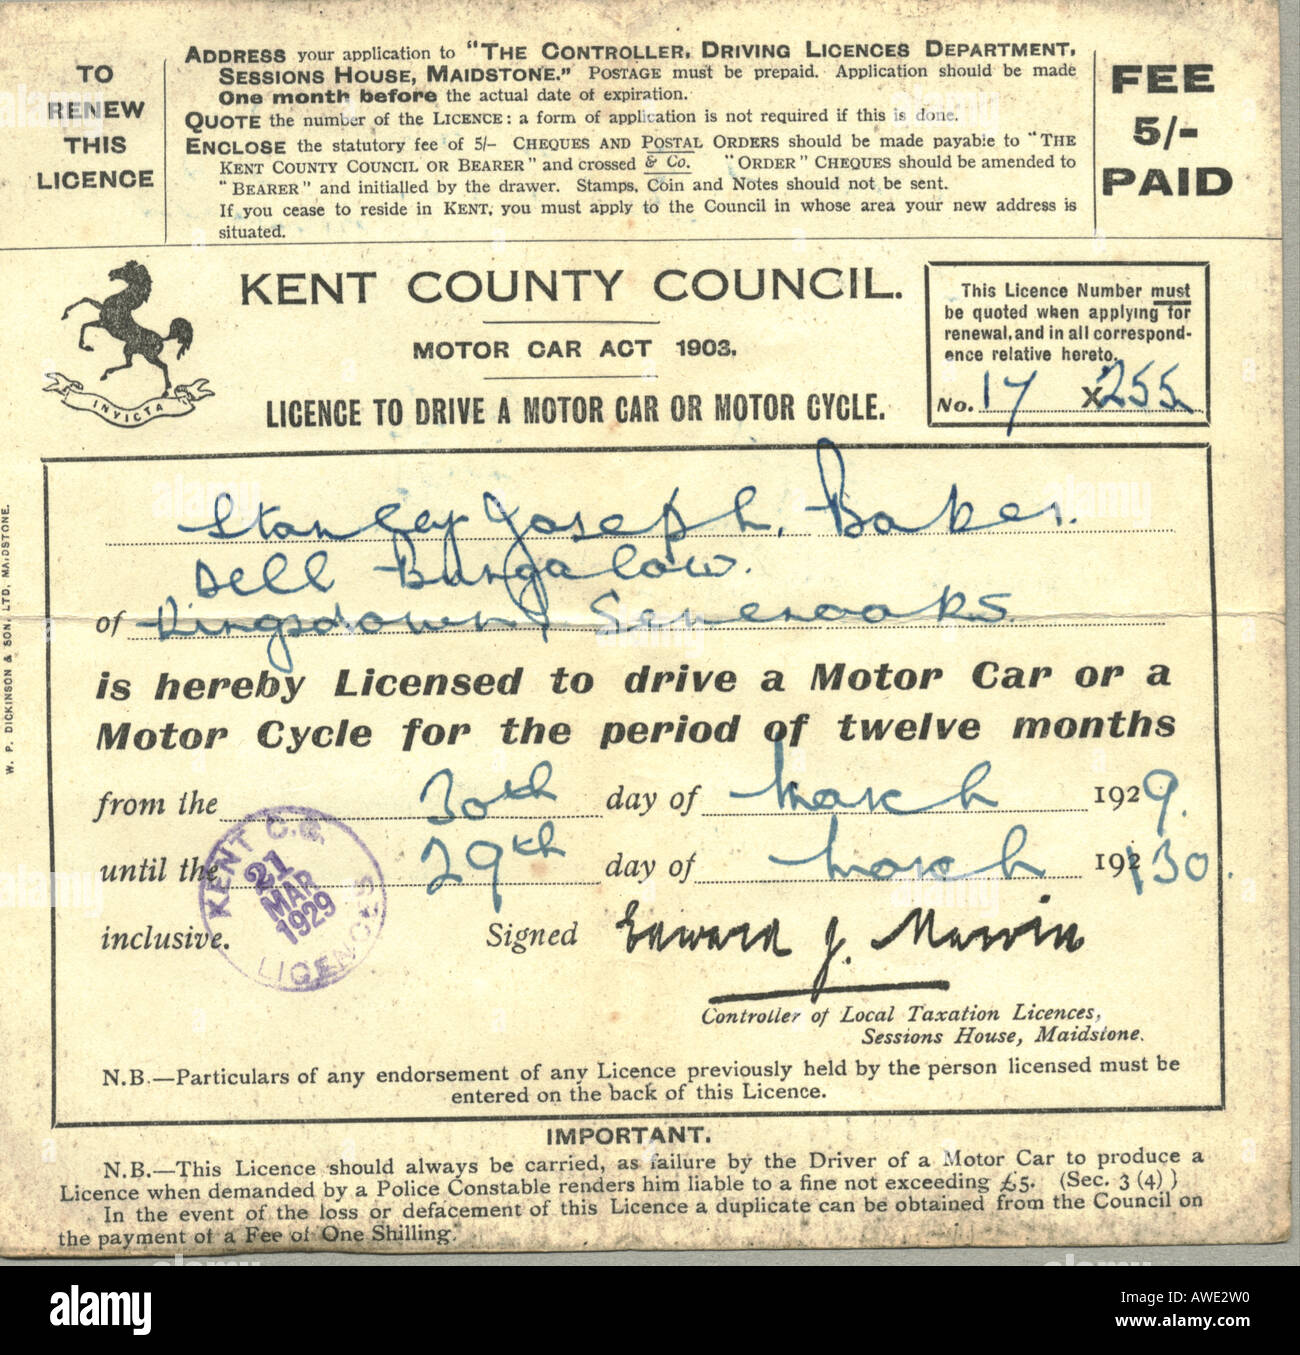 TO
RENEW
THIS
LICENCE
ADDRESS your application to "THE CONTROLLER, DRIVING LICENCES DEPARTMENT,
SESSIONS HOUSE, MAIDSTONE." POSTAGE must be prepaid. Application should be made
One month before the actual date of expiration.
QUOTE the number of the LICENCE: a form of application is not required if this is done.
ENCLOSE the statutory fee of 5/- CHEQUES AND POSTAL ORDERS should be made payable to "THE
KENT COUNTY COUNCIL OR BEARER" and crossed & Co. "ORDER" CHEQUES should be amended to
"BEARER" and initialled by the drawer. Stamps, Coin and Notes should not be sent.
If you cease to reside in KENT, you must apply to the Council in whose area your new address is
situated.
FEE
5/-
PAID
INVICTA
KENT COUNTY COUNCIL.
MOTOR CAR ACT 1903.
LICENCE TO DRIVE A MOTOR CAR OR MOTOR CYCLE.
This Licence Number must
be quoted when applying for
renewal, and in all correspond-
ence relative hereto.
No. 17 X255
Stanley Joseph, Baker.
Dell Bungalow.
of Kingsdown Sevenoaks.
is hereby Licensed to drive a Motor Car or a
Motor Cycle for the period of twelve months
from the 30th day of March 1929.
until the 29th day of March 192 130.
inclusive.
KENT C.C.
21
MAR
1929
LICENCES
Signed Edward J. Marvin
Controller of Local Taxation Licences,
Sessions House, Maidstone.
N.B.—Particulars of any endorsement of any Licence previously held by the person licensed must be
entered on the back of this Licence.
IMPORTANT.
N.B.—This Licence should always be carried, as failure by the Driver of a Motor Car to produce a
Licence when demanded by a Police Constable renders him liable to a fine not exceeding £5. (Sec. 3 (4) )
In the event of the loss or defacement of this Licence a duplicate can be obtained from the Council on
the payment of a Fee of One Shilling.
W. P. DICKINSON & SON, LTD. MAIDSTONE.
alamy
Image ID: AWE2W0
www.alamy.com